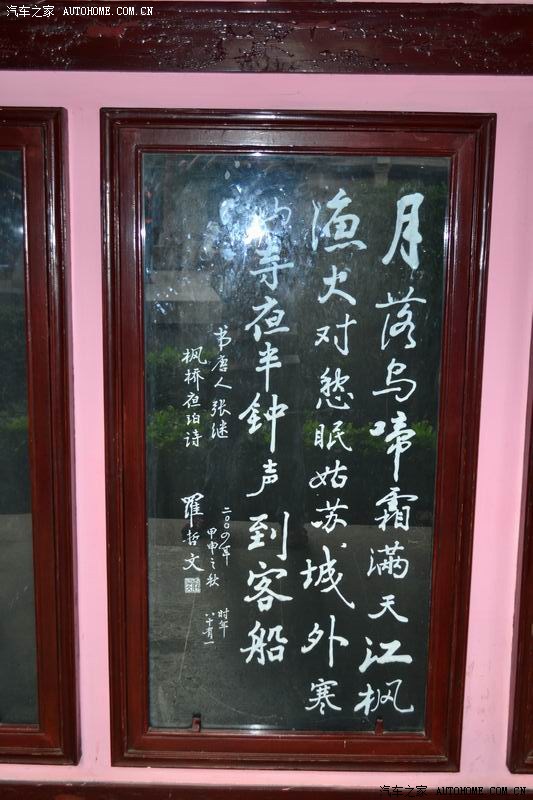 汽车之家 AUTOHOME.COM.CN
月落乌啼霜满天江枫
渔火对愁眠姑苏城外寒
山寺夜半钟声到客船
书唐人张继
枫桥夜泊诗
二〇〇四年
甲申之秋
时年
八十有一
罗哲文
汽车之家 AUTOHOME.COM.CN